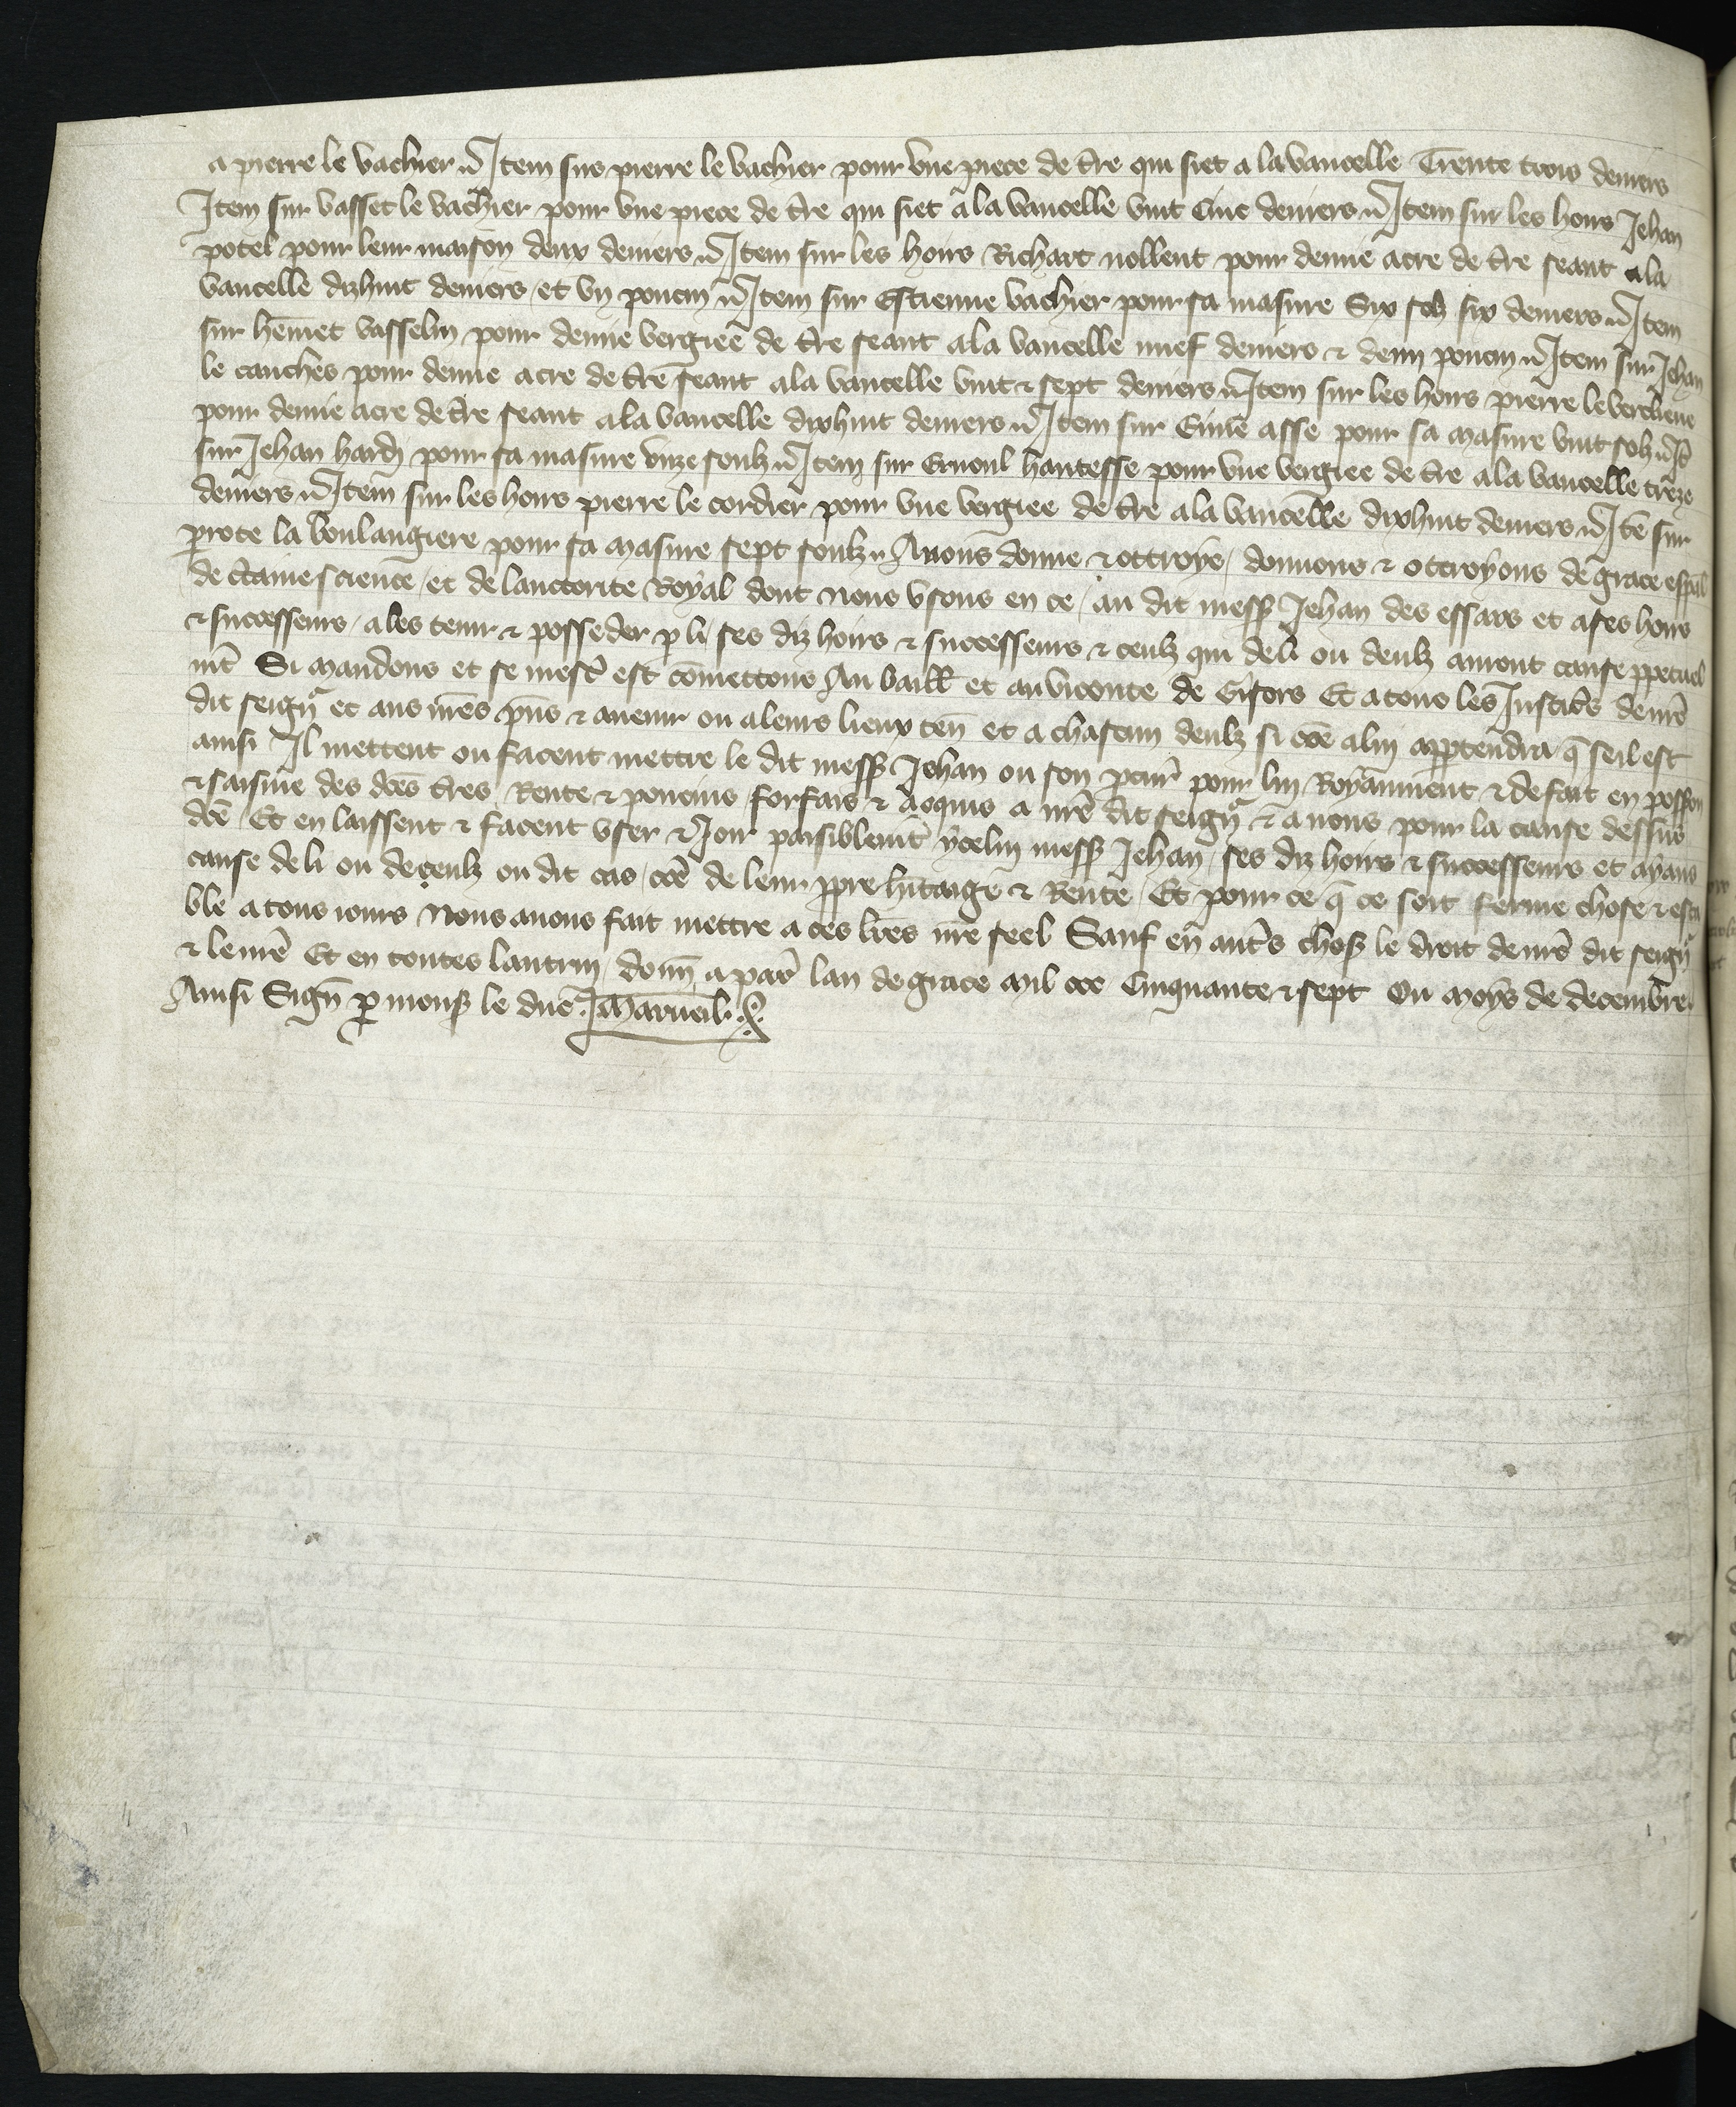 a pierre le vachier Item sus pierre le vachier pour vne piece de tr̄e qui siet a la vaucelle Trente trois deniers
Item sur vasset le vachier pour vne piece de tr̄e qui siet a la vaucelle vint Cinc deniers Item sur les hoirs Jehan
potel pour leur maison deux deniers Item sur les hoirs Richart nollent pour demie acre de tr̄e seant a la
vaucelle dizhuit deniers et vn poucin Item sur Estienne vachier pour sa masure Six solz six deniers Item
sur hem̄et vasselin pour demie vergiee de tr̄e seant a la vaucelle nuef deniers & demi poucin Item sur Jehan
le cauches pour demie acre de tr̄e seant a la vaucelle vint & sept deniers Item sur les hoirs pierre le
pour demie acre de tr̄e seant a la vaucelle dixhuit deniers Item sur asse pour sa masure vint solz It̄
sur Jehan hardi pour sa masure vnze soulz Item sur Ernoul hautesse pour vne vergiee de tr̄e a la vaucelle treze
deniers Item sur les hoirs pierre le cordier pour vne vergiee de tr̄e a la vaucelle dixhuit deniers Itē sur
perote la boulangiere pour sa masure sept soulz Auons donne & ottroye / donnons & ottroyons de grace esp̄al
de c̄taine science / et de lauctorite Royal dont nous vsons en ce / au dit mess̄ Jehan des essars et a ses hoirs
& successeurs / a les tenir & posseder p̱ li ses diz hoirs & successeurs & ceulz qui de li ou deulz auront cause p̱petuel
mt̄ Si mandons et se mest̄ est com̄ettons Au baill̄ et au viconte de Gisors Et a tous les Justic̄s de nr̄e
dit seign̄r et aus nr̄es p̄ns & auenir ou a leurs lieux ten̄ et a chascun deulz si com̄e a lui app̱tendra q̄ se il est
ainsi Il mettent ou facent mettre le dit mess̄ Jehan ou son p̱cur̄ pour lui Royaument & de fait en poss̄on
& saisine des d̄es tr̄es Rente & poucins forfais & acquis a nr̄e dit seign̄r & a nous pour la cause dessus
d̄ce Et en laissent & facent vser & Joir paisiblemt̄ ycelui mess̄ Jehan / ses diz hoirs & successeurs et ayans
cause de li ou de ceulz ou dit cas / com̄e de leur p̱pre h̄itaige & Rente / Et pour ce q̄ ce soit ferme chose & esta
ble a tous iours Nous auons fait mettre a ces lr̄es nr̄e seel Sauf en aut̄s chos̄ le droit de nr̄e dit seign̄r
& le nr̄e Et en toutes lautrui / Donn̄ a par̄ lan de grace mil ccc Cinquante & sept Ou moys de decembre.
Ainsi Sign̄ p̱ mons̄ le duc. J Marueil.